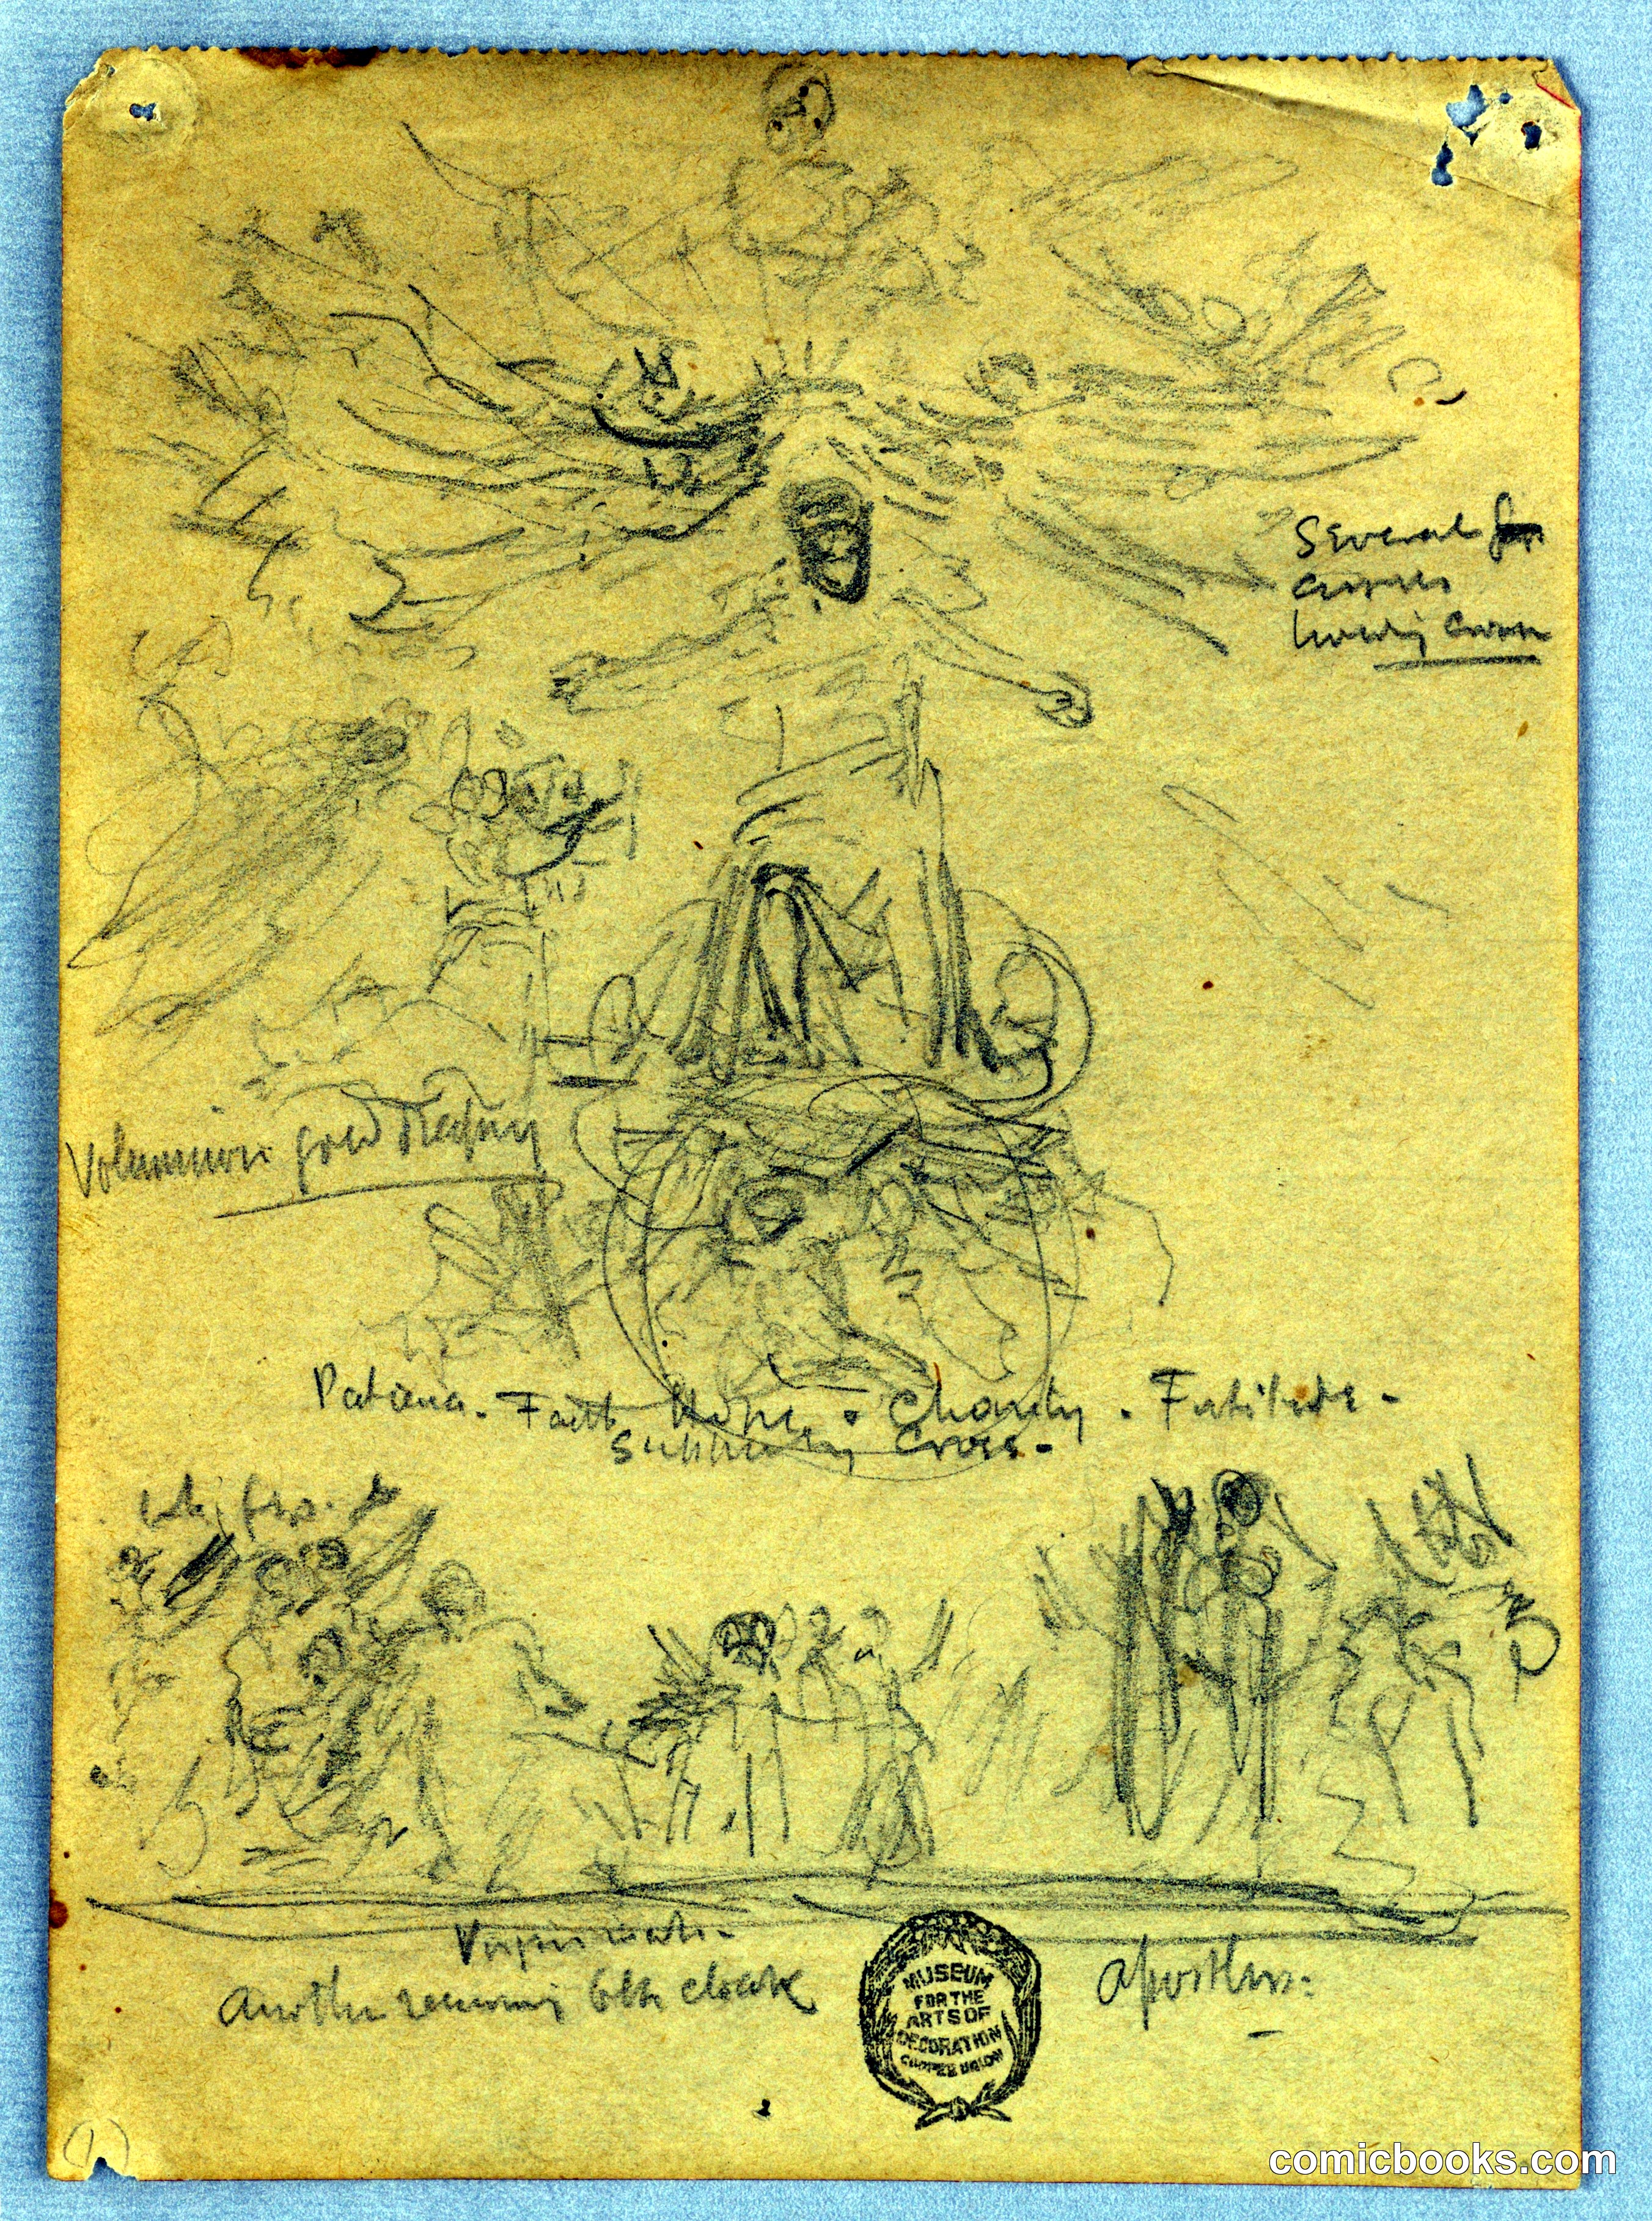 Several
holding crown
Voluminous gold drapery
Patience - Faith Hope : Charity . Fortitude -
Supporting Cross -
Another receiving 6th cloak
Apostles:
MUSEUM
FOR THE
ARTS OF
DECORATION
COOPER UNION
comicbooks.com